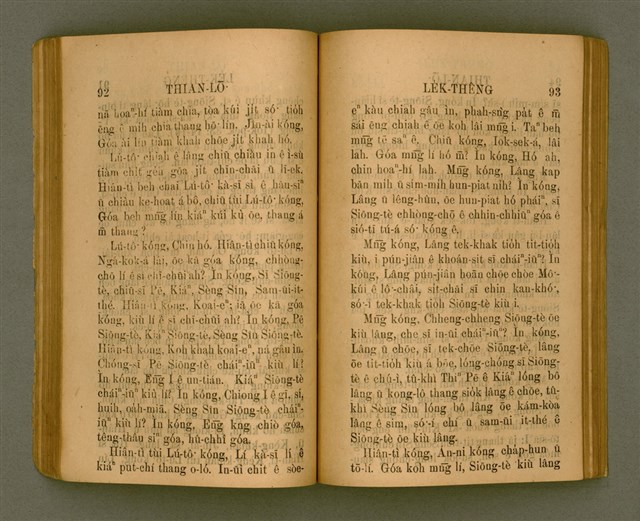 92 THIAN-LŌ͘
nā hoaⁿ-hí tiàm chia, tòa kúi ji̍t só͘ tio̍h
ēng ê mi̍h chia thang hō͘ lín. Jîn-ài kóng,
Góa ài lín tiàm khah chōe ji̍t khah hó.
Lú-tô͘ chiah ê lâng chiū chiâu in ê ì-sù
tiàm chit gōa ji̍t chin-chài ū lī-ek.
Hiân-tì beh chai Lú-tô͘ kà-sī sī ê hāu-siⁿ
ū chiàu ke-hoat á bô, chiū tùi Lú-tô͘ kóng,
Góa beh mn̄g lín kiáⁿ kúi kù ōe, thang á
m̄ thang?
Lú-tô͘ kóng, Chin hó. Hiân-tì chiū kóng,
Ngá-kok-á lâi, ōe kā góa kóng, chhòng-
chō lí ê sī chī-chūi ah? In kóng, Sī Siōng-
tè, chiū-sī Pē, Kiáⁿ, Sèng Sîn, Sam-ūi-it-
thé. Hiân-tì kóng, Koai-eⁿ; iā ōe kā góa
kóng, kiù lí ê sī chī-chūi ah? In kóng, Pē
Siōng-tè, Kiáⁿ Siōng-tè, Sèng Sîn Siōng-tè.
Hiân-tì kóng, Koh khah koai-eⁿ, ná gâu ìn.
Chóng-sī Pē Siōng-tè cháiⁿ-iūⁿ kiù lí?
In kóng, Ēng I ê un-tián. Kiáⁿ Siōng-tè
cháiⁿ-iūⁿ kiù lí? In kóng, Chiong I ê gī, sí,
huih, oa̍h-miā. Sèng Sîn Siōng-tè cháiⁿ-
iūⁿ kiù lí? In kóng, Ēng kng chiò góa,
têng-thâu siⁿ góa, hû-chhî góa.
Hiân-tì tùi Lú-tô͘ kóng, Lí kà-sī lí ê
kiáⁿ put-chí thang o-ló. In-ūi chit ê sòe-
LE̍K-THÊNG 93
eⁿ kàu chiah gâu ìn, phah-sǹg pa̍t ê m̄
sái ēng chiah ê ōe koh lâi mn̄g i. Taⁿ beh
mn̄g tē saⁿ ê. Chiū kóng, Iok-sek-á, lâi
lah. Góa mn̄g lí hó m̄? In kóng, Hó ah,
chin hoaⁿ-hí lah. Mn̄g kóng, Lâng kap
bān mi̍h ū sím-mi̍h hun-pia̍t nih? In kóng,
Lâng ū lêng-hûn, ōe hun-piat hó pháiⁿ, sī
Siōng-tè chhòng-chō ê chhin-chhiūⁿ góa ê
sió-tī tú-á só͘ kóng ê.
Mn̄g kóng, Lâng tek-khak tio̍h tit-tio̍h
kiù, i pún-jiân ê khoán-sit sī cháiⁿ-iūⁿ? In
kóng, Lâng pún-jiân hoān chōe chòe Mô͘-
kúi ê lô͘-châi, si̍t-chāi sī chin kan-khó͘,
só͘-í tek-khak tio̍h Siōng-tè kiù i.
Mn̄g kóng, Chheng-chheng Siōng-tè ōe
kiù lâng, che sī in-ūi cháiⁿ-iūⁿ? In kóng,
Lâng ū chōe, sī tek-chōe Siōng-tè, lâng
ōe tit-tio̍h kiù á bōe, lóng-chóng sī Siōng-
tè ê chú-ì, tû-khì Thiⁿ Pē ê Kiáⁿ lóng bô
lâng ū kong-lô thang sio̍k lâng ê chōe, tû-
khì Sèng Sîn lóng bô lâng ōe kám-kòa
lâng ê sim, só͘-í chí ū sam-ūi it-thé ê
Siōng-tè ōe kiù lâng.
Hiân-tì kóng, Án-ni kóng cha̍p-hun ū
tō-lí. Góa koh mn̄g lí, Siōng-tè kiù lâng